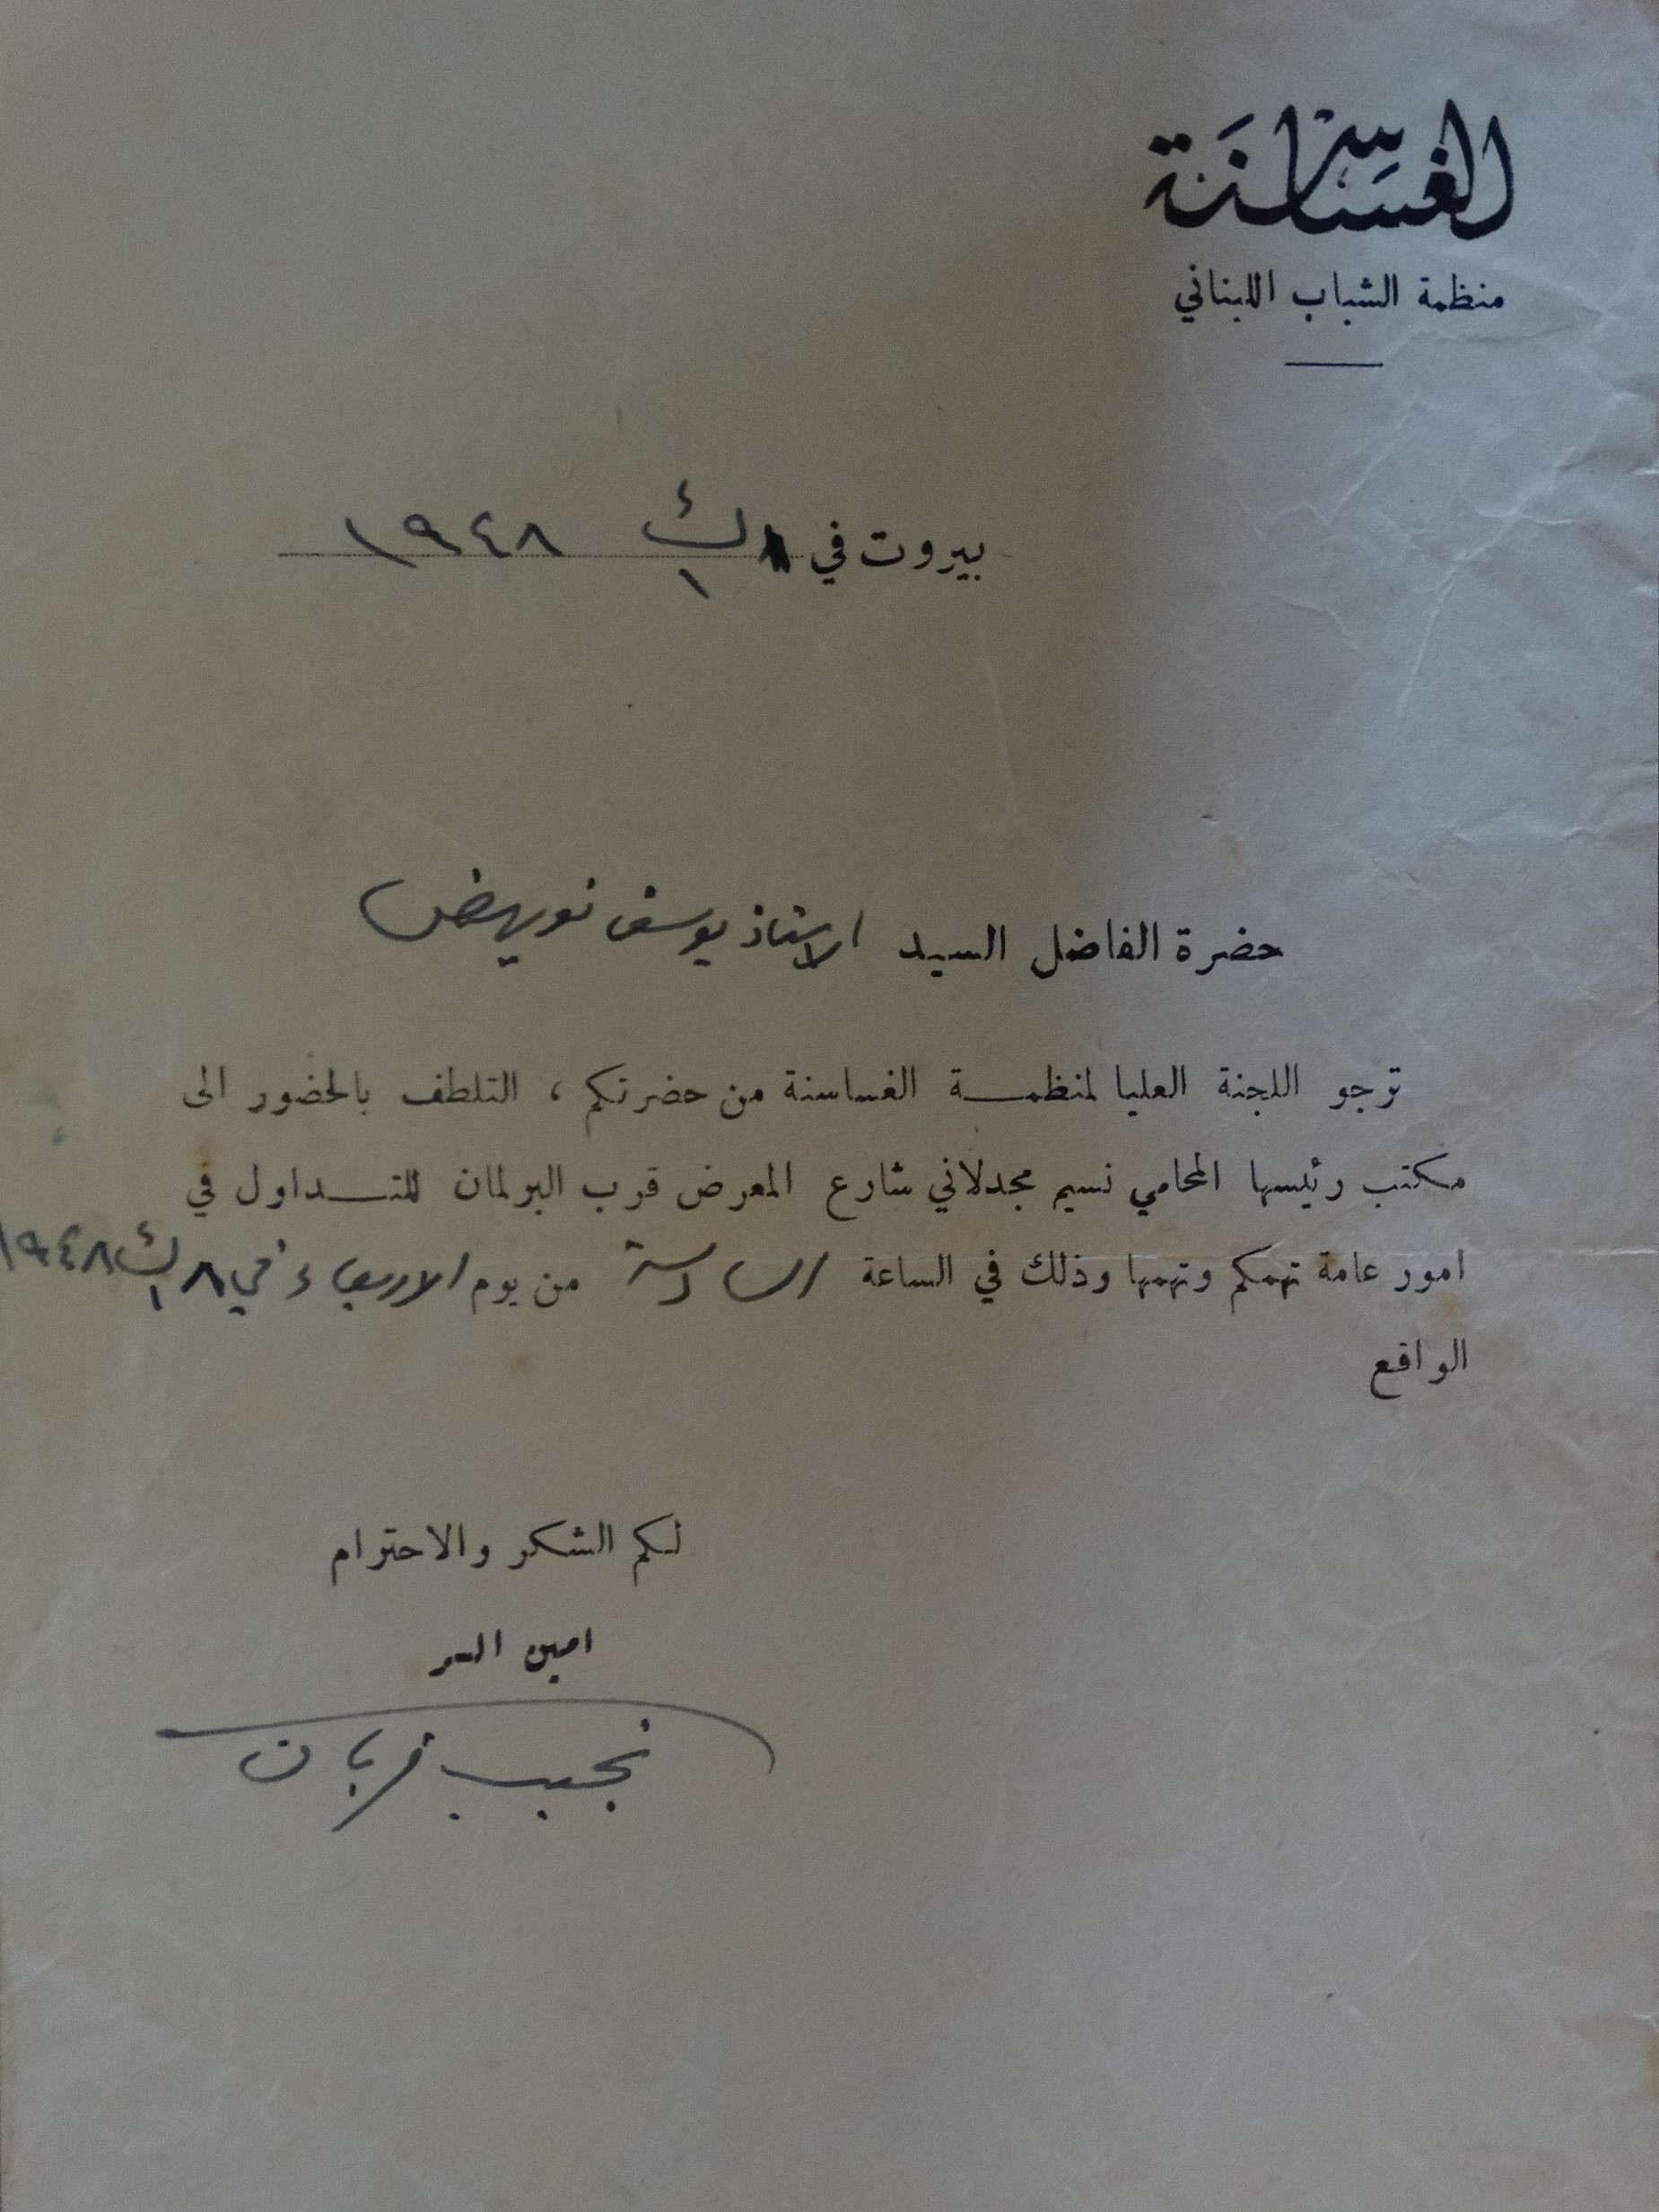 الغساسنة
منظمة الشباب اللبناني
بيروت في ١ ك١ ١٩٤٨
حضرة الفاضل السيد الاستاذ يوسف نويهض
ترجو اللجنة العليا لمنظمة الغساسنة من حضرتكم ، التلطف بالحضور الى
مكتب رئيسها المحامي نسيم مجدلاني شارع المعرض قرب البرلمان للتداول في
امور عامة تهمكم وتهمها وذلك في الساعة السادسة من يوم الاربعاء في ٨ ك١ ١٩٤٨
الواقع
لكم الشكر والاحترام
امين السر
نجيب قربان